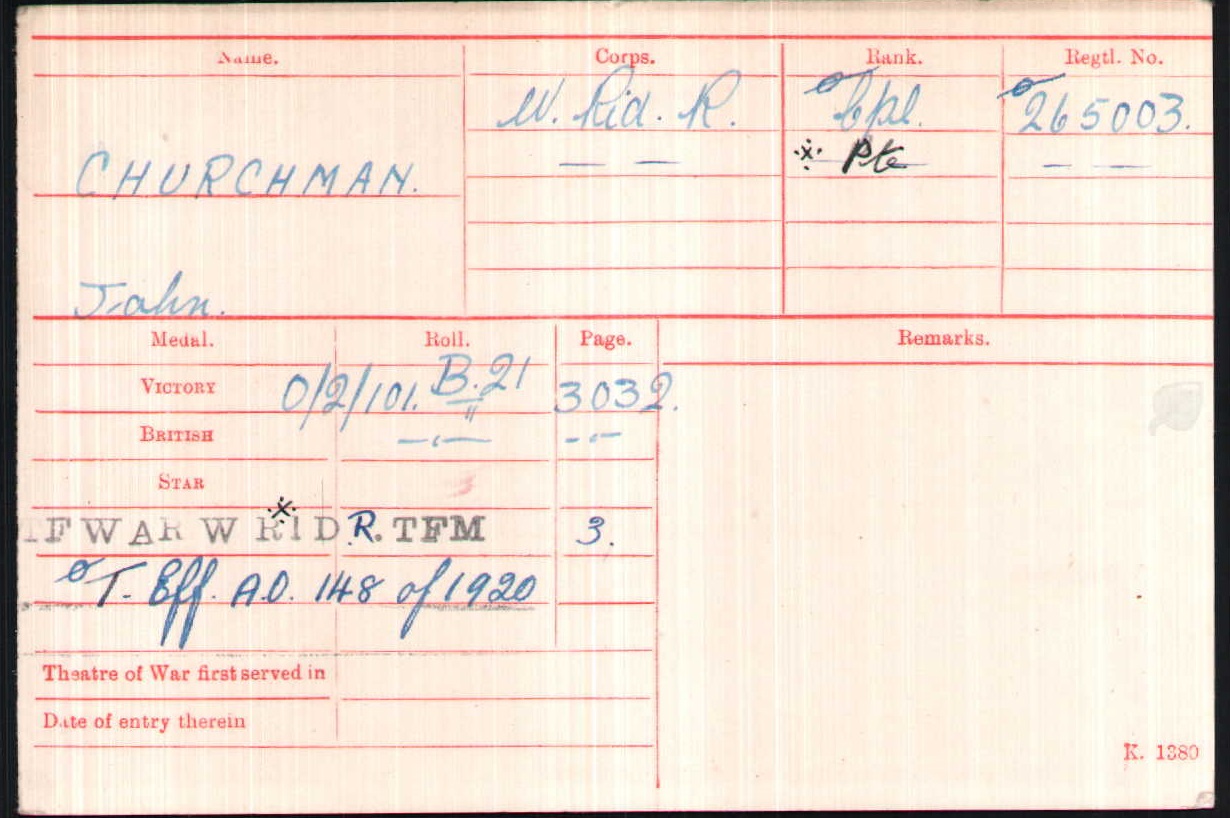 Name. Corps. Rank. Regtl. No.
W. Rid. R. ø Cpl. ø 265003.
CHURCHMAN. — — ※ Pte — —
John.
Medal. Roll. Page. Remarks.
VICTORY O/2/101. B.21 3032.
BRITISH —"— —"—
STAR
TF WAR W RID R. TFM ※ 3.
ø T. Eff. A.O. 148 of 1920
Theatre of War first served in
Date of entry therein
K. 1380